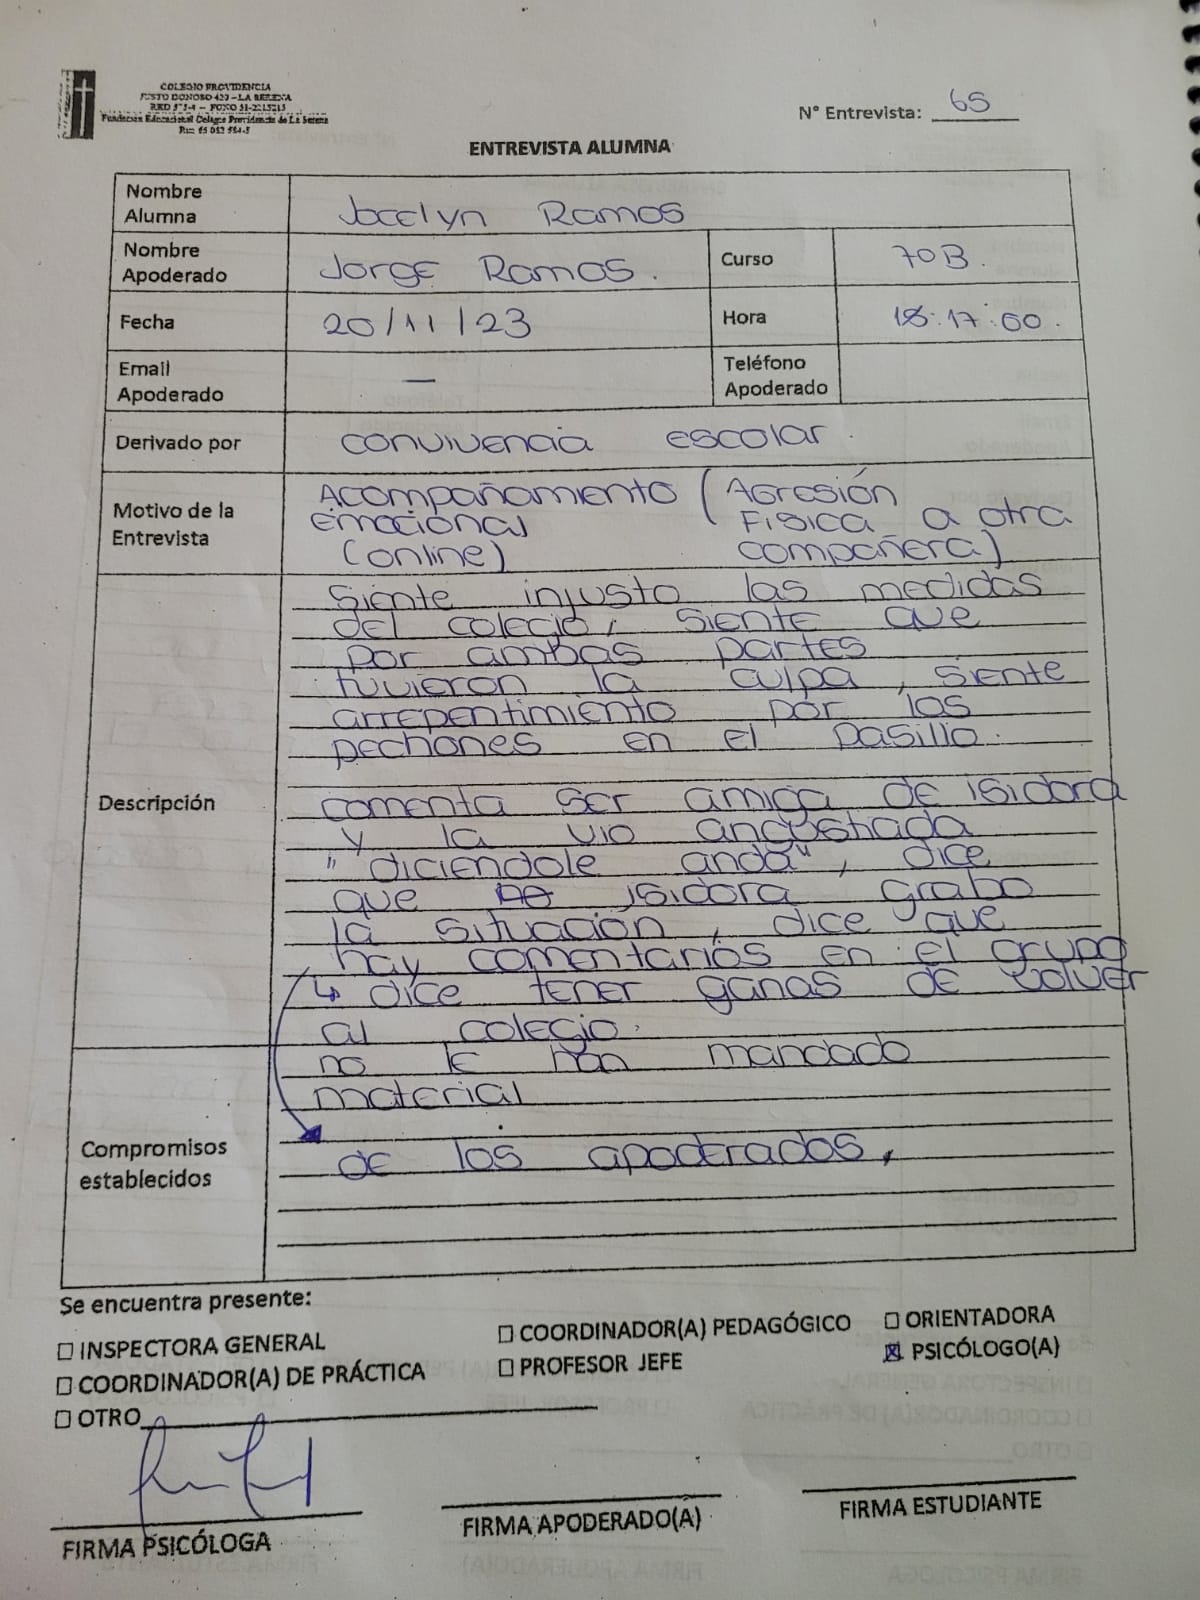 COLEGIO PROVIDENCIA
JUSTO DONOSO 420 - LA SERENA
Fundación Educacional Colegio Providencia de La Serena
N° Entrevista: 65
ENTREVISTA ALUMNA
Nombre Alumna
Jocelyn Ramos
Nombre Apoderado
Jorge Ramos.
Curso
7OB.
Fecha
20/11/23
Hora
17:00.
Email Apoderado
—
Teléfono Apoderado
Derivado por
convivencia escolar.
Motivo de la Entrevista
Acompañamiento (Agresión
Emocional Física a otra
(online) compañera)
Descripción
Siente injusto las medidas
del colegio, siente que
por ambas partes
tuvieron la culpa, siente
arrepentimiento por los
pechones en el pasillo.
comenta ser amiga de isidora
y la vio angustiada
"diciendole anda", dice
que isidora grabo
la situación, dice que
hay comentarios en el grupo
↳ dice tener ganas de volver
al colegio.
no le han mandado
material
Compromisos establecidos
de los apoderados.
Se encuentra presente:
☐ INSPECTORA GENERAL
☐ COORDINADOR(A) PEDAGÓGICO
☐ ORIENTADORA
☐ COORDINADOR(A) DE PRÁCTICA
☐ PROFESOR JEFE
☒ PSICÓLOGO(A)
☐ OTRO
FIRMA PSICÓLOGA
FIRMA APODERADO(A)
FIRMA ESTUDIANTE